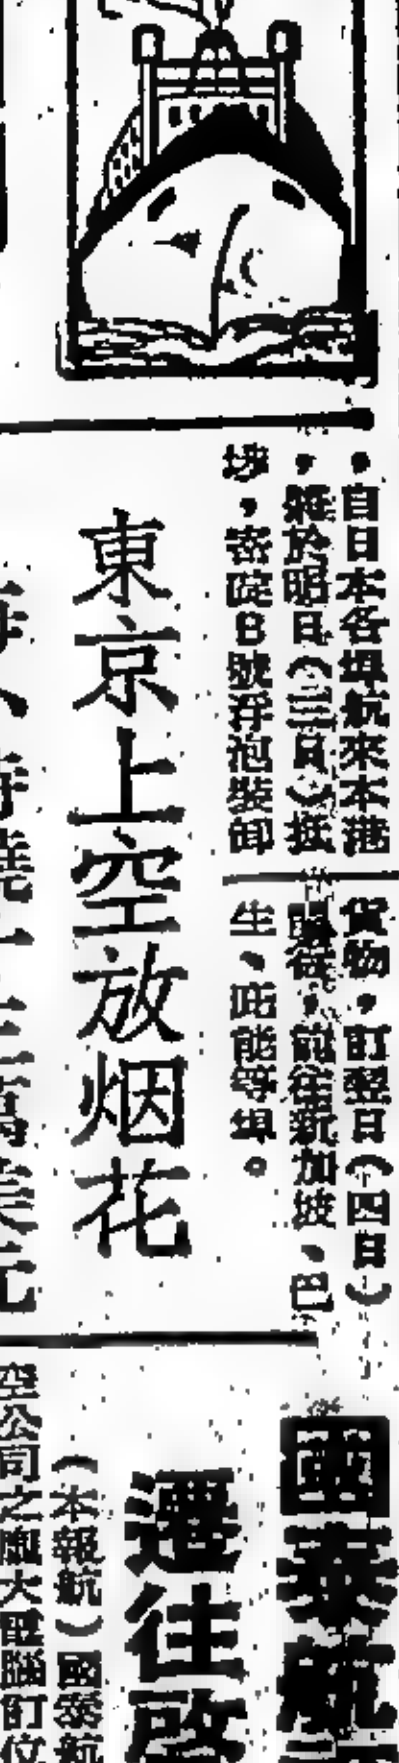 ，自日本各埠航來本港
，將於明日（三日）抵
埗，寄碇B號浮泡裝卸
貨物，訂翌日（四日）
，前往新加坡、巴
生、吡能等埠。
東京上空放烟花
國泰航
遷往啓
（本報航）國泰航
空公司之龐大電腦訂位